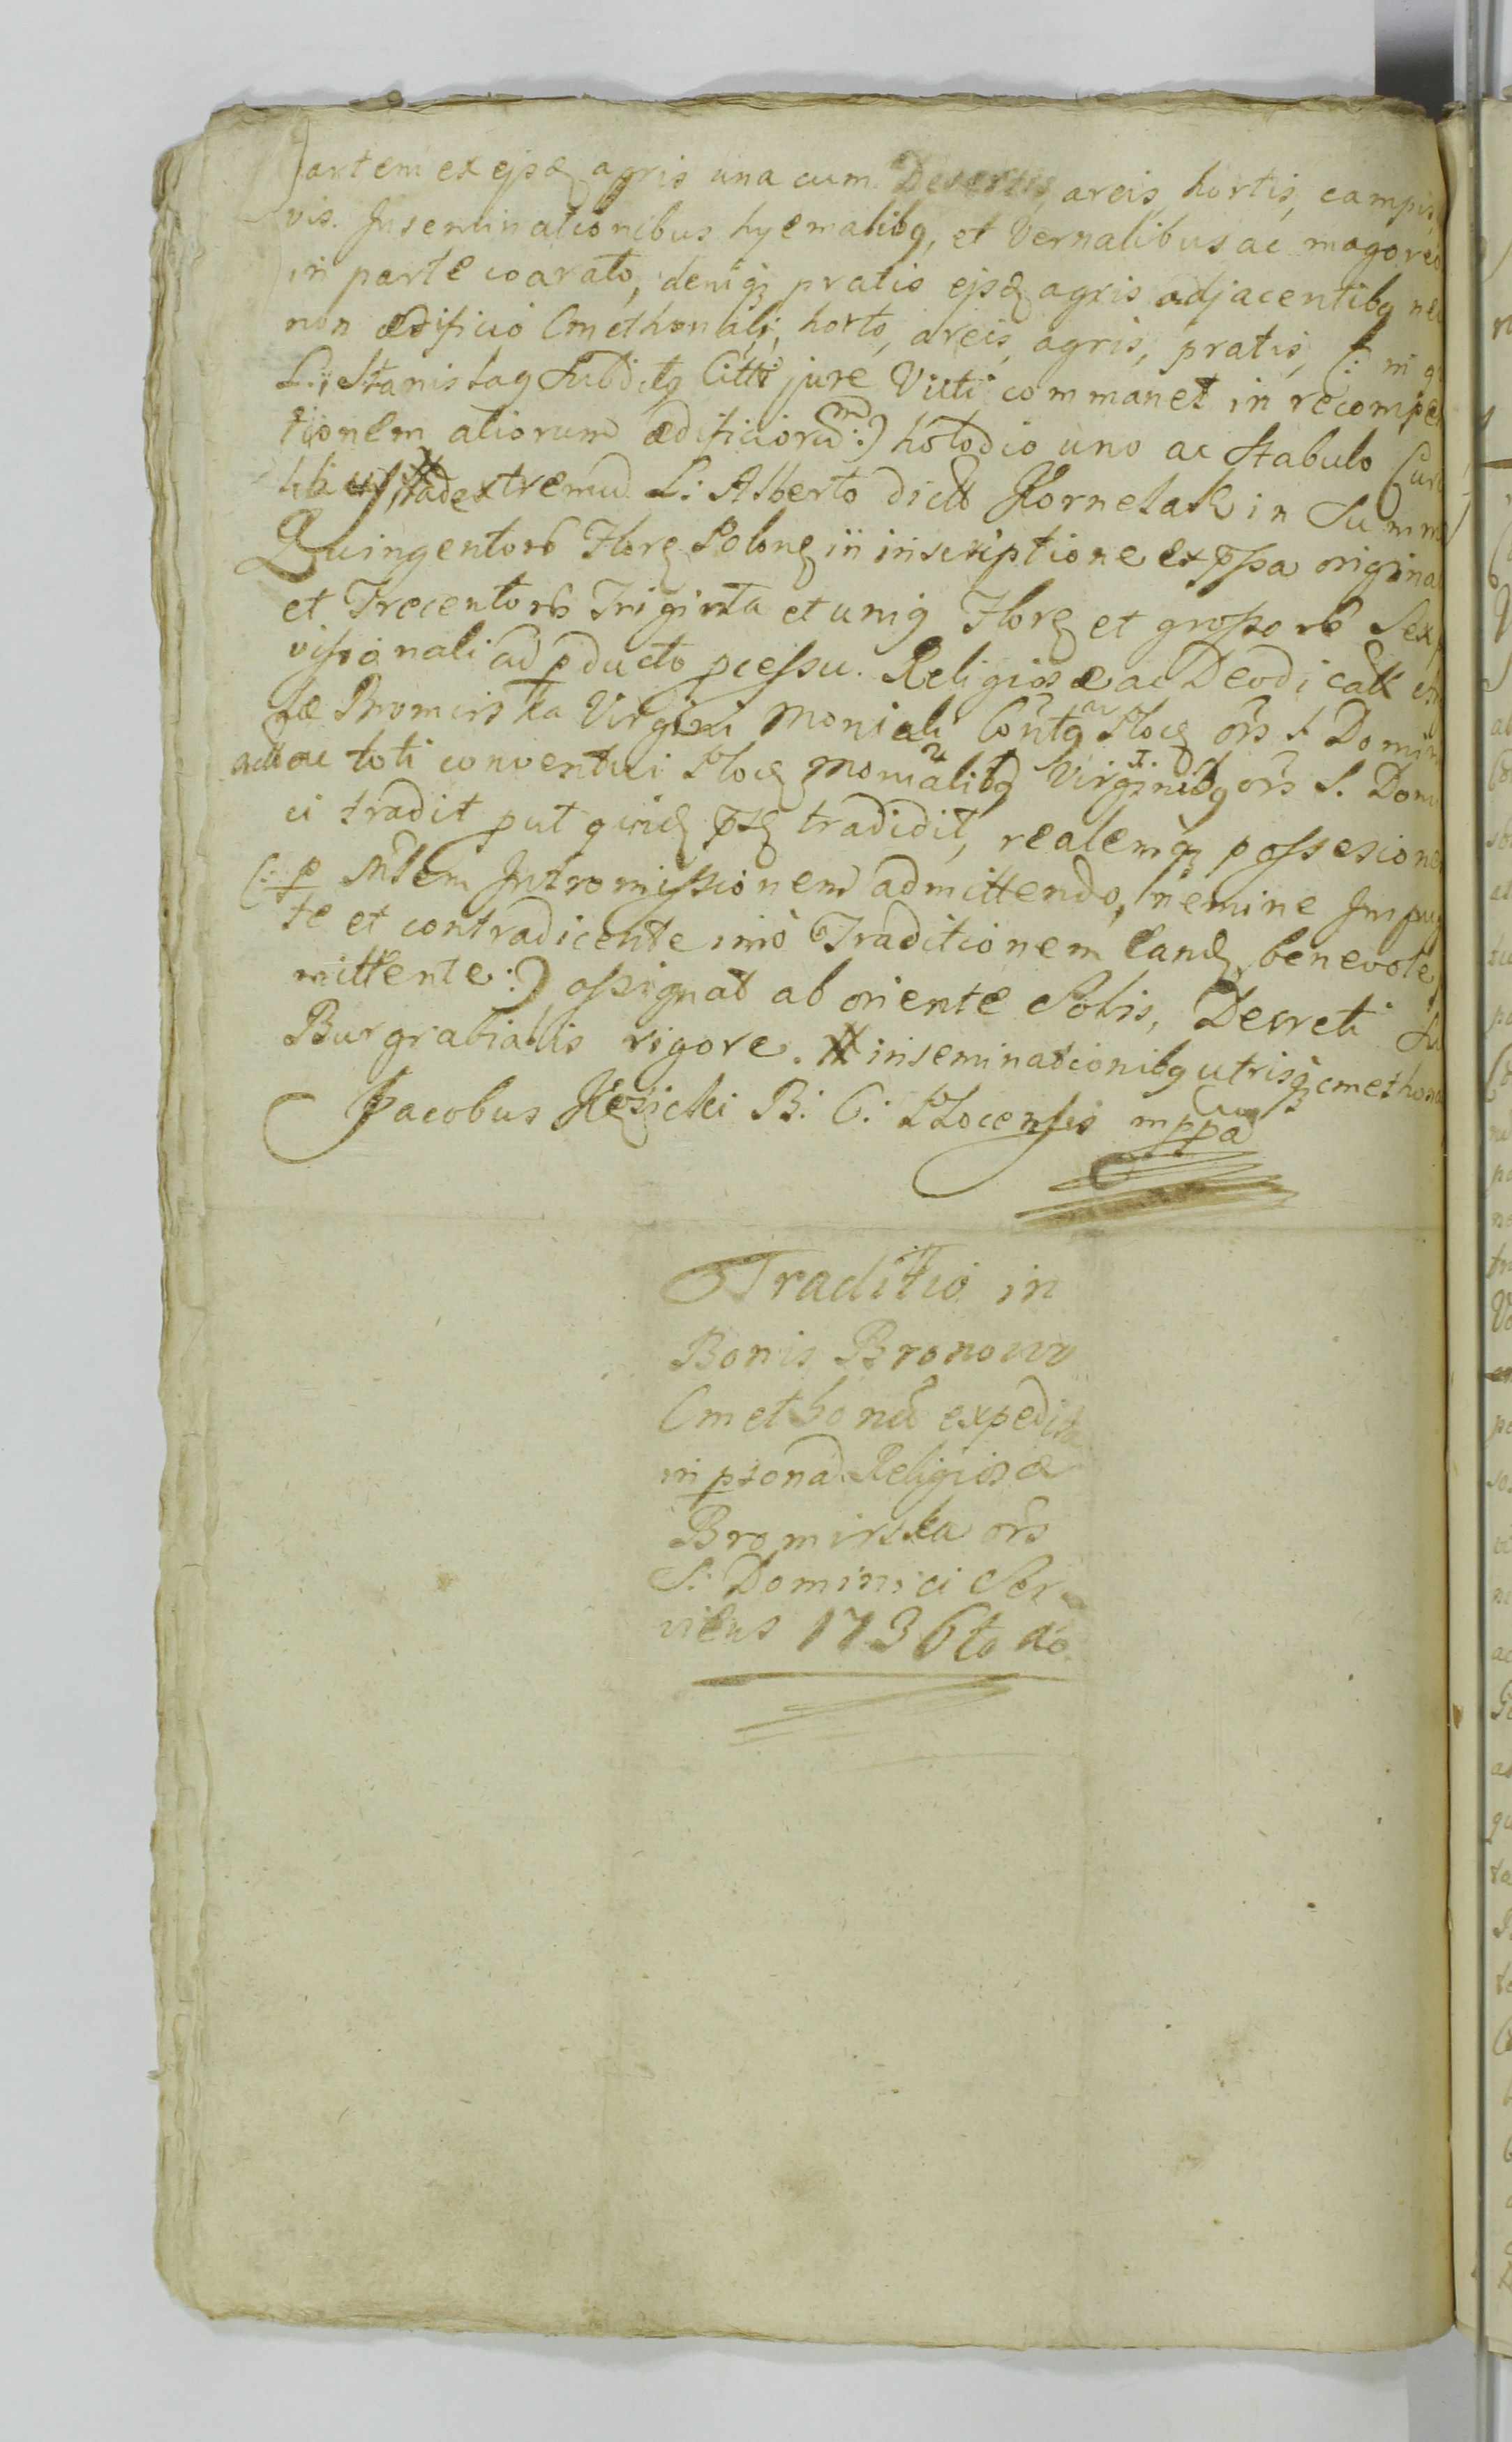 Partem ex ejsd agris una cum Desertis, areis, hortis, campis,
vis. Inseminationibus hyemalibq, et Vernalibus ac magoreo
in parte coarato, deniqz pratis ejsd agris adjacentibq nec
non ædificio Cmethonali, horto, areis, agris, pratis, (: in q
L: Stanislaq Subditq Citti jure Victi commanet in recompe
tionem aliorum ædificiorũ :) hólodio uno ac Stabulo
ad extremũ L: Alberto dicto Kornelak in Summ
Quingentorũ Flore Polone in inscriptione expssa origina
et Trecentorũ Triginta et uniq Flore et grossorũ Sex
visionali adpducto pcessu. Religiosæ ac Deodicatæ
Bromirska Virgini Moniali Contq Ploce ors S Domin
ac toti conventui Ploce Monialibq Virginibq ors S. Domi
ci tradit put quide pse tradidit, realemqz possesione
(: p Intromissionem admittendo, nemine Impug
te et contradicente imò Traditionem eand benevole
mittente :) assignat ab oriente Solis, Decreti
Burgrabialis rigore. # inseminationibq utrisqz cmethona
Jacobus Kęsicki B: C: Plocensis mppa
Traditio in
Bonis Bronowo
Cmethonũ expedita
in psona Religiosæ
Bromirska ors
S: Dominici Ser-
viens 1736to Ao.